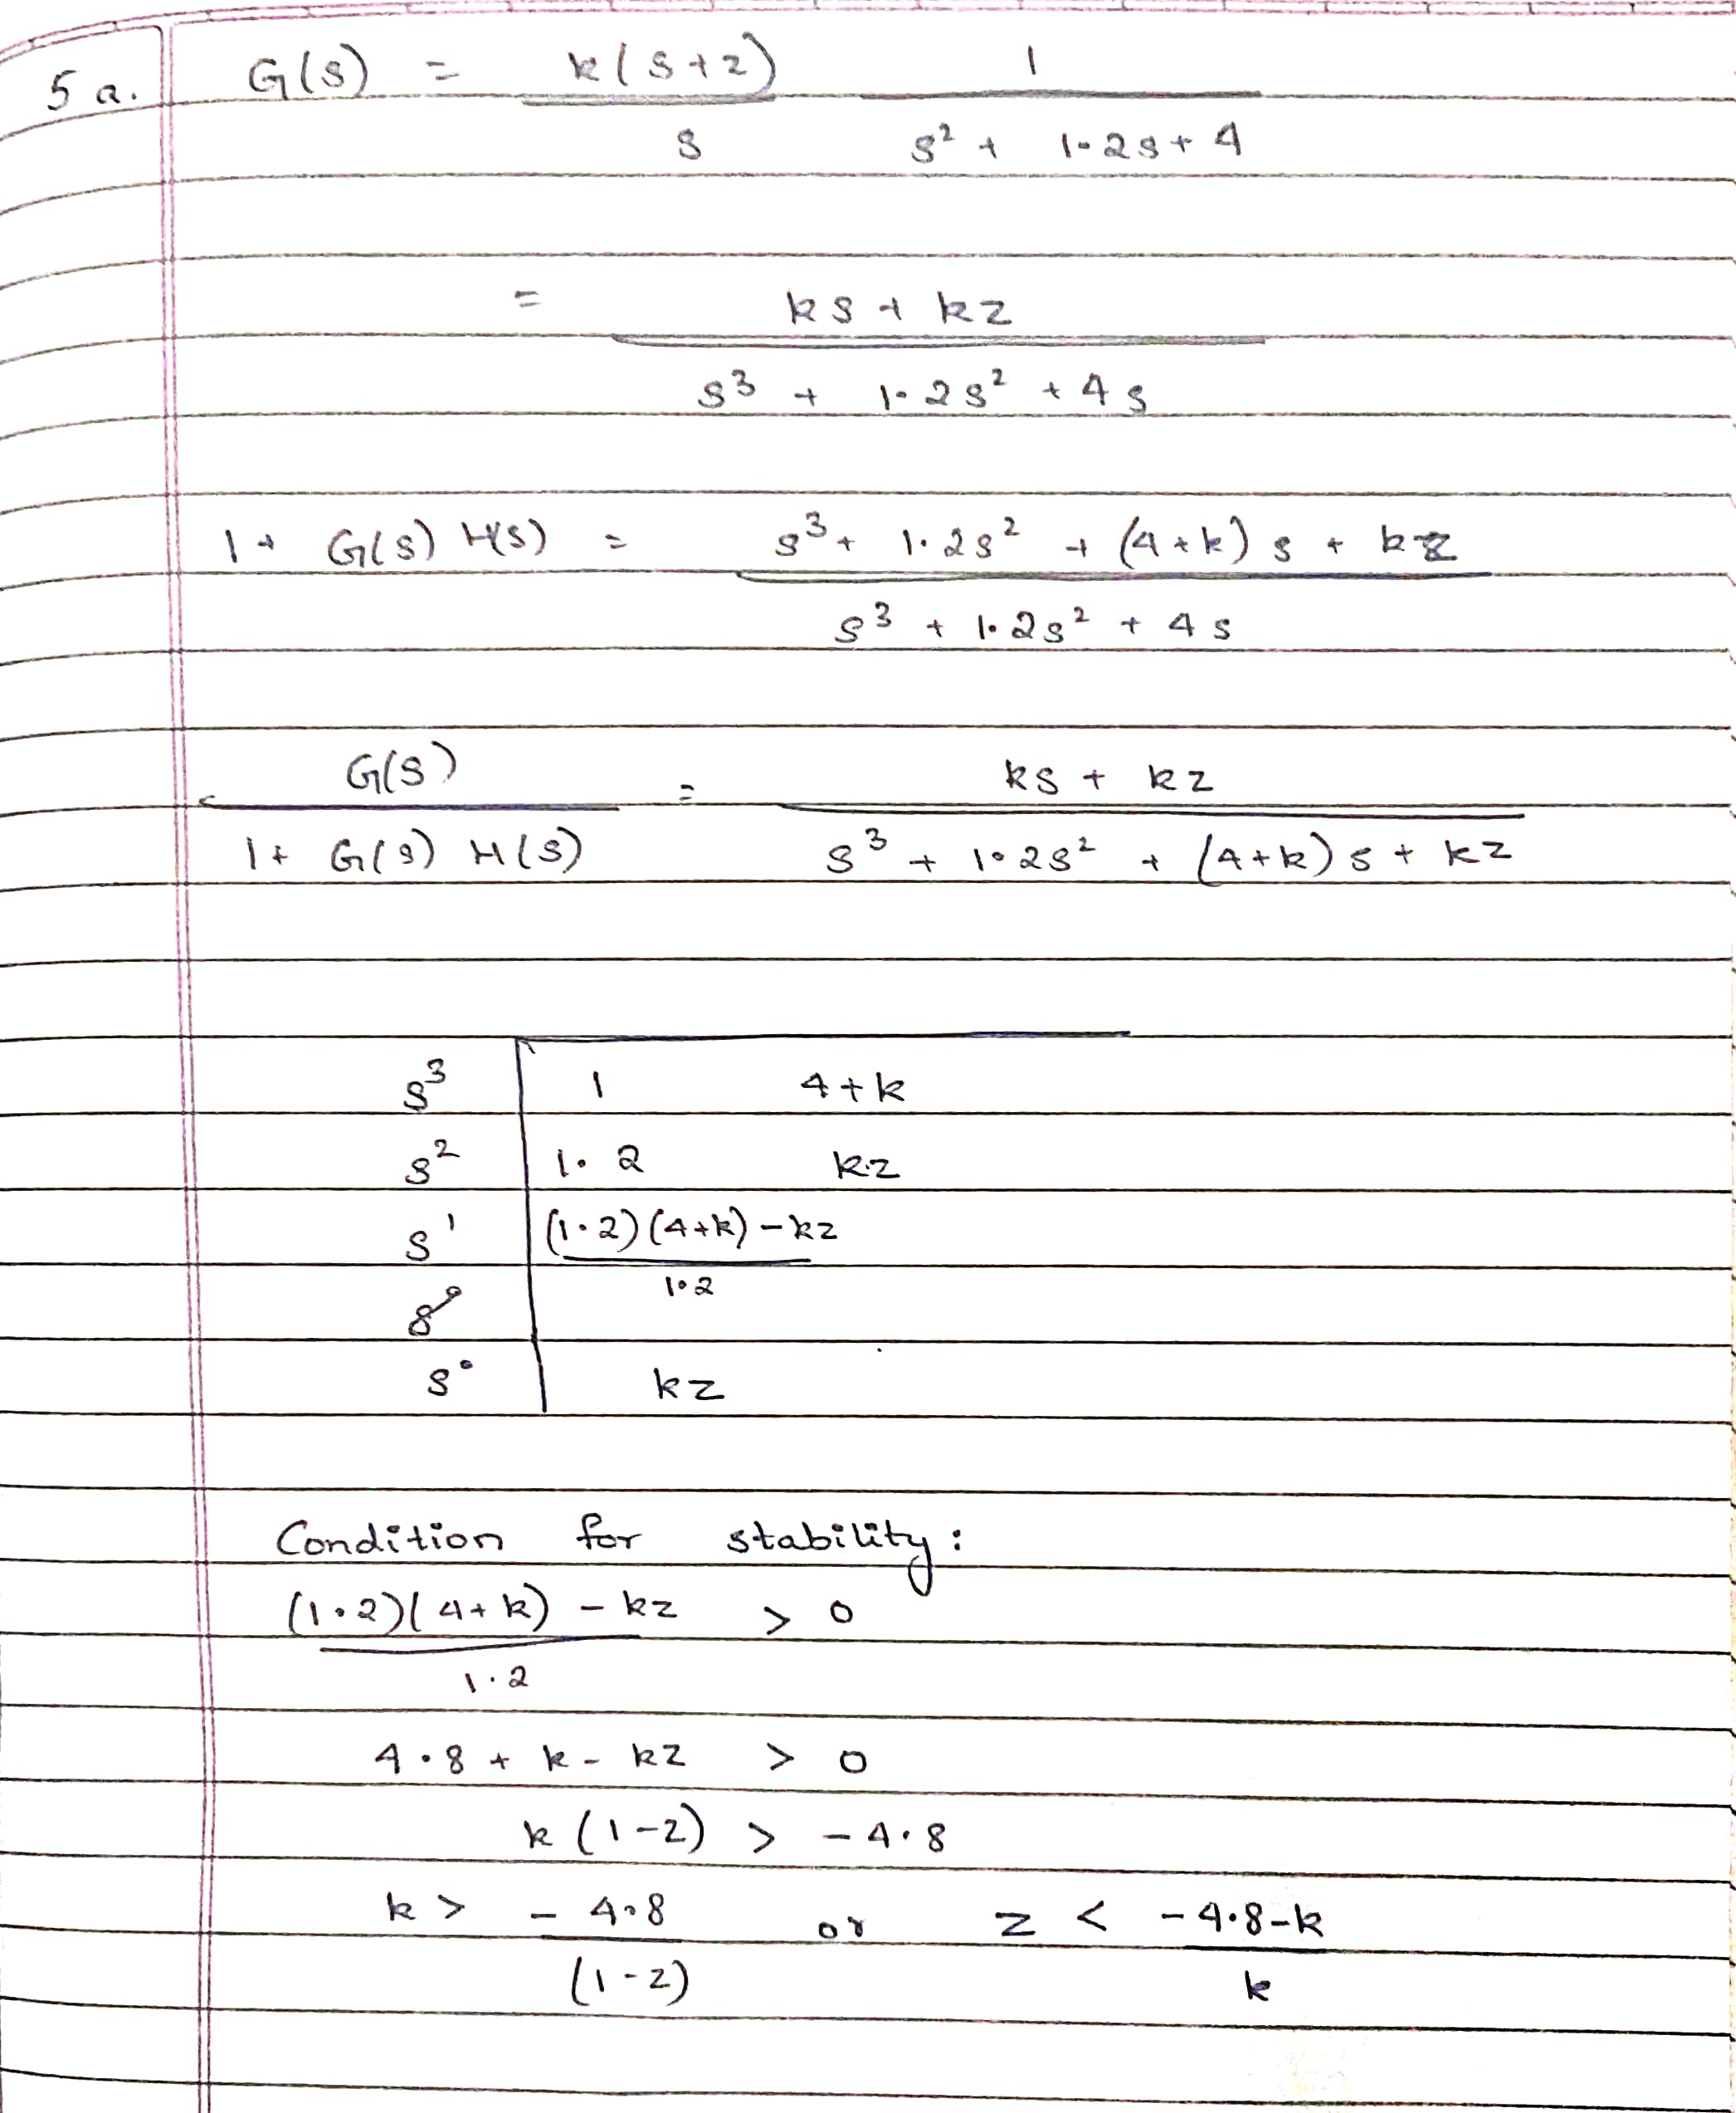 5 a. G(s) = k(s+z) 1
s s² + 1.2s + 4
= ks + kz
s³ + 1.2s² + 4s
1 + G(s) H(s) = s³ + 1.2s² + (4+k) s + kz
s³ + 1.2s² + 4s
G(s) = ks + kz
1 + G(s) H(s) s³ + 1.2s² + (4+k) s + kz
s³ 1 4+k
s² 1.2 kz
s¹ (1.2)(4+k) - kz
1.2
s⁰ kz
Condition for stability:
(1.2)(4+k) - kz > 0
1.2
4.8 + k - kz > 0
k(1-z) > -4.8
k > -4.8 or z < -4.8-k
(1-z) k